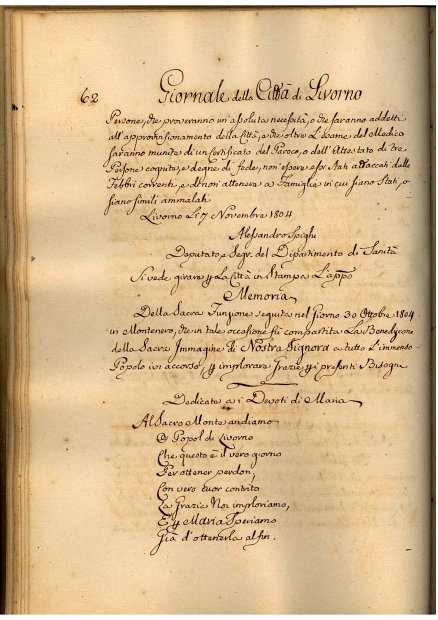 62 Giornale della Città di Livorno
Persone, che proveranno un'assoluta necessità, o che saranno addetti
all'approvisionamento della Città, e che oltre L'esame del Medico
saranno munite di un certificato del Paroco, o dell'Attestato di tre
Persone cognite, e degne di fede, non essere essi stati attaccati dalle
Febbri correnti, e di non attenere a Famiglie in cui siano stati, o
siano simili ammalati
Livorno Li 7 Novembre 1804
Alessandro Spighi
Deputato, e Segr. del Dipartimento di Sanità
Si vede girare p La Città in Stampa L'app.
Memoria
Della Sacra Funzione seguita nel Giorno 30 Ottobre 1804
in Montenero, che in tale occasione fù compartita La Benedizione
della Sacra Immagine di Nostra Signora a tutto L'immenso
Popolo ivi accorso, p implorare Grazie p i presenti Bisogni
Dedicate a i Devoti di Maria
Al Sacro Monte andiamo
O Popol di Livorno
Che questo è il vero giorno
Per ottener perdon,
Con vero cuor contrito
La Grazie Noi imploriamo,
E p Maria Speriamo
Già d'ottenerla alfin.